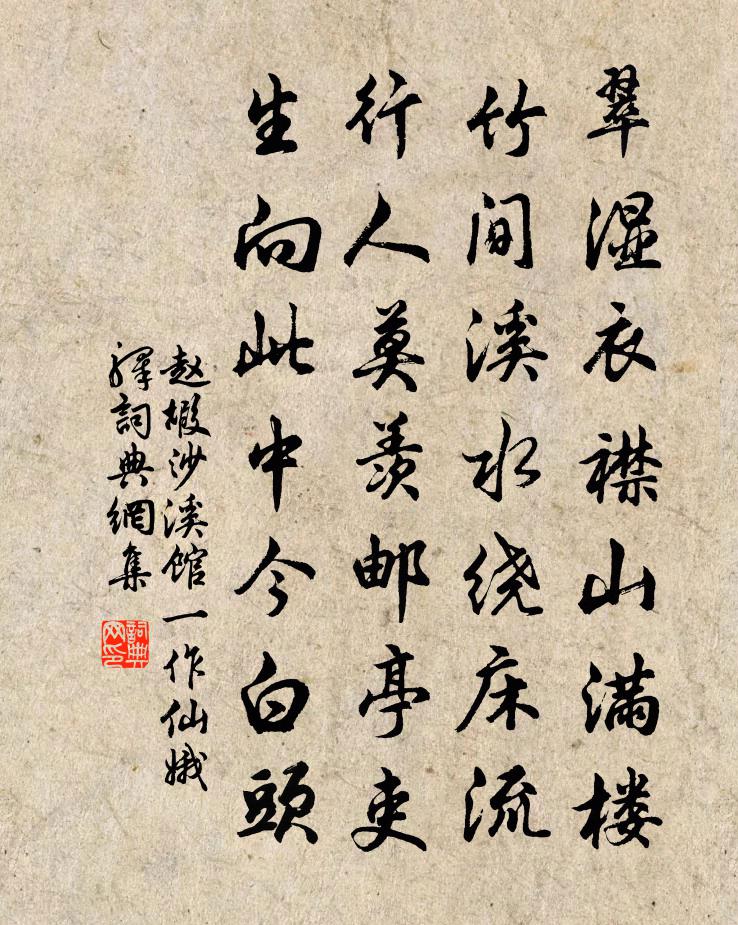 翠湿衣襟山满楼
竹间溪水绕床流
行人莫羡邮亭吏
生向此中今白頭
赵嘏沙溪馆一作仙娥
驛詞典網集
詞典
网印